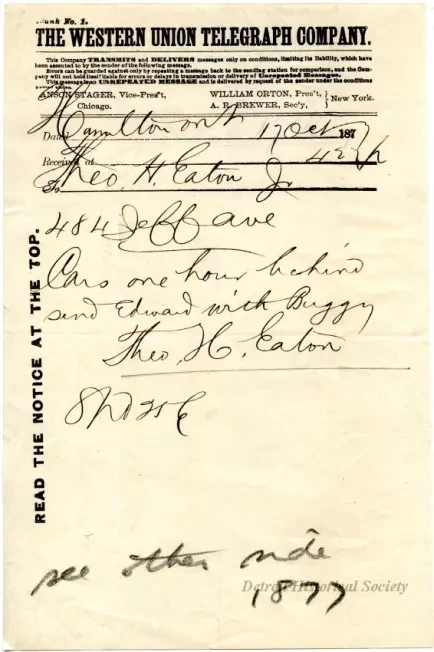 Blank No. 1.
THE WESTERN UNION TELEGRAPH COMPANY.
This Company TRANSMITS and DELIVERS messages only on conditions, limiting its liability, which have
been assented to by the sender of the following message.
Errors can be guarded against only by repeating a message back to the sending station for comparison, and the Com-
pany will not hold itself liable for errors or delays in transmission or delivery of Unrepeated Messages.
This message is an UNREPEATED MESSAGE and is delivered by request of the sender under the conditions
ANSON STAGER, Vice-Pres't, Chicago.
WILLIAM ORTON, Pres't, A. R. BREWER, Sec'y, } New York.
Dated Hamilton Ont 17 Oct 1877
Received at
To Theo. H. Eaton Jr
484 Jeff ave
Cars one hour behind
send Edward with Buggy
Theo. H. Eaton
READ THE NOTICE AT THE TOP.
see other side
1877
Detroit Historical Society